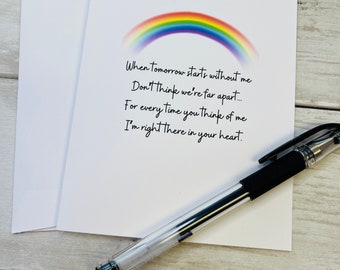 When tomorrow starts without me
Don't think we're far apart...
For every time you think of me
I'm right there in your heart.